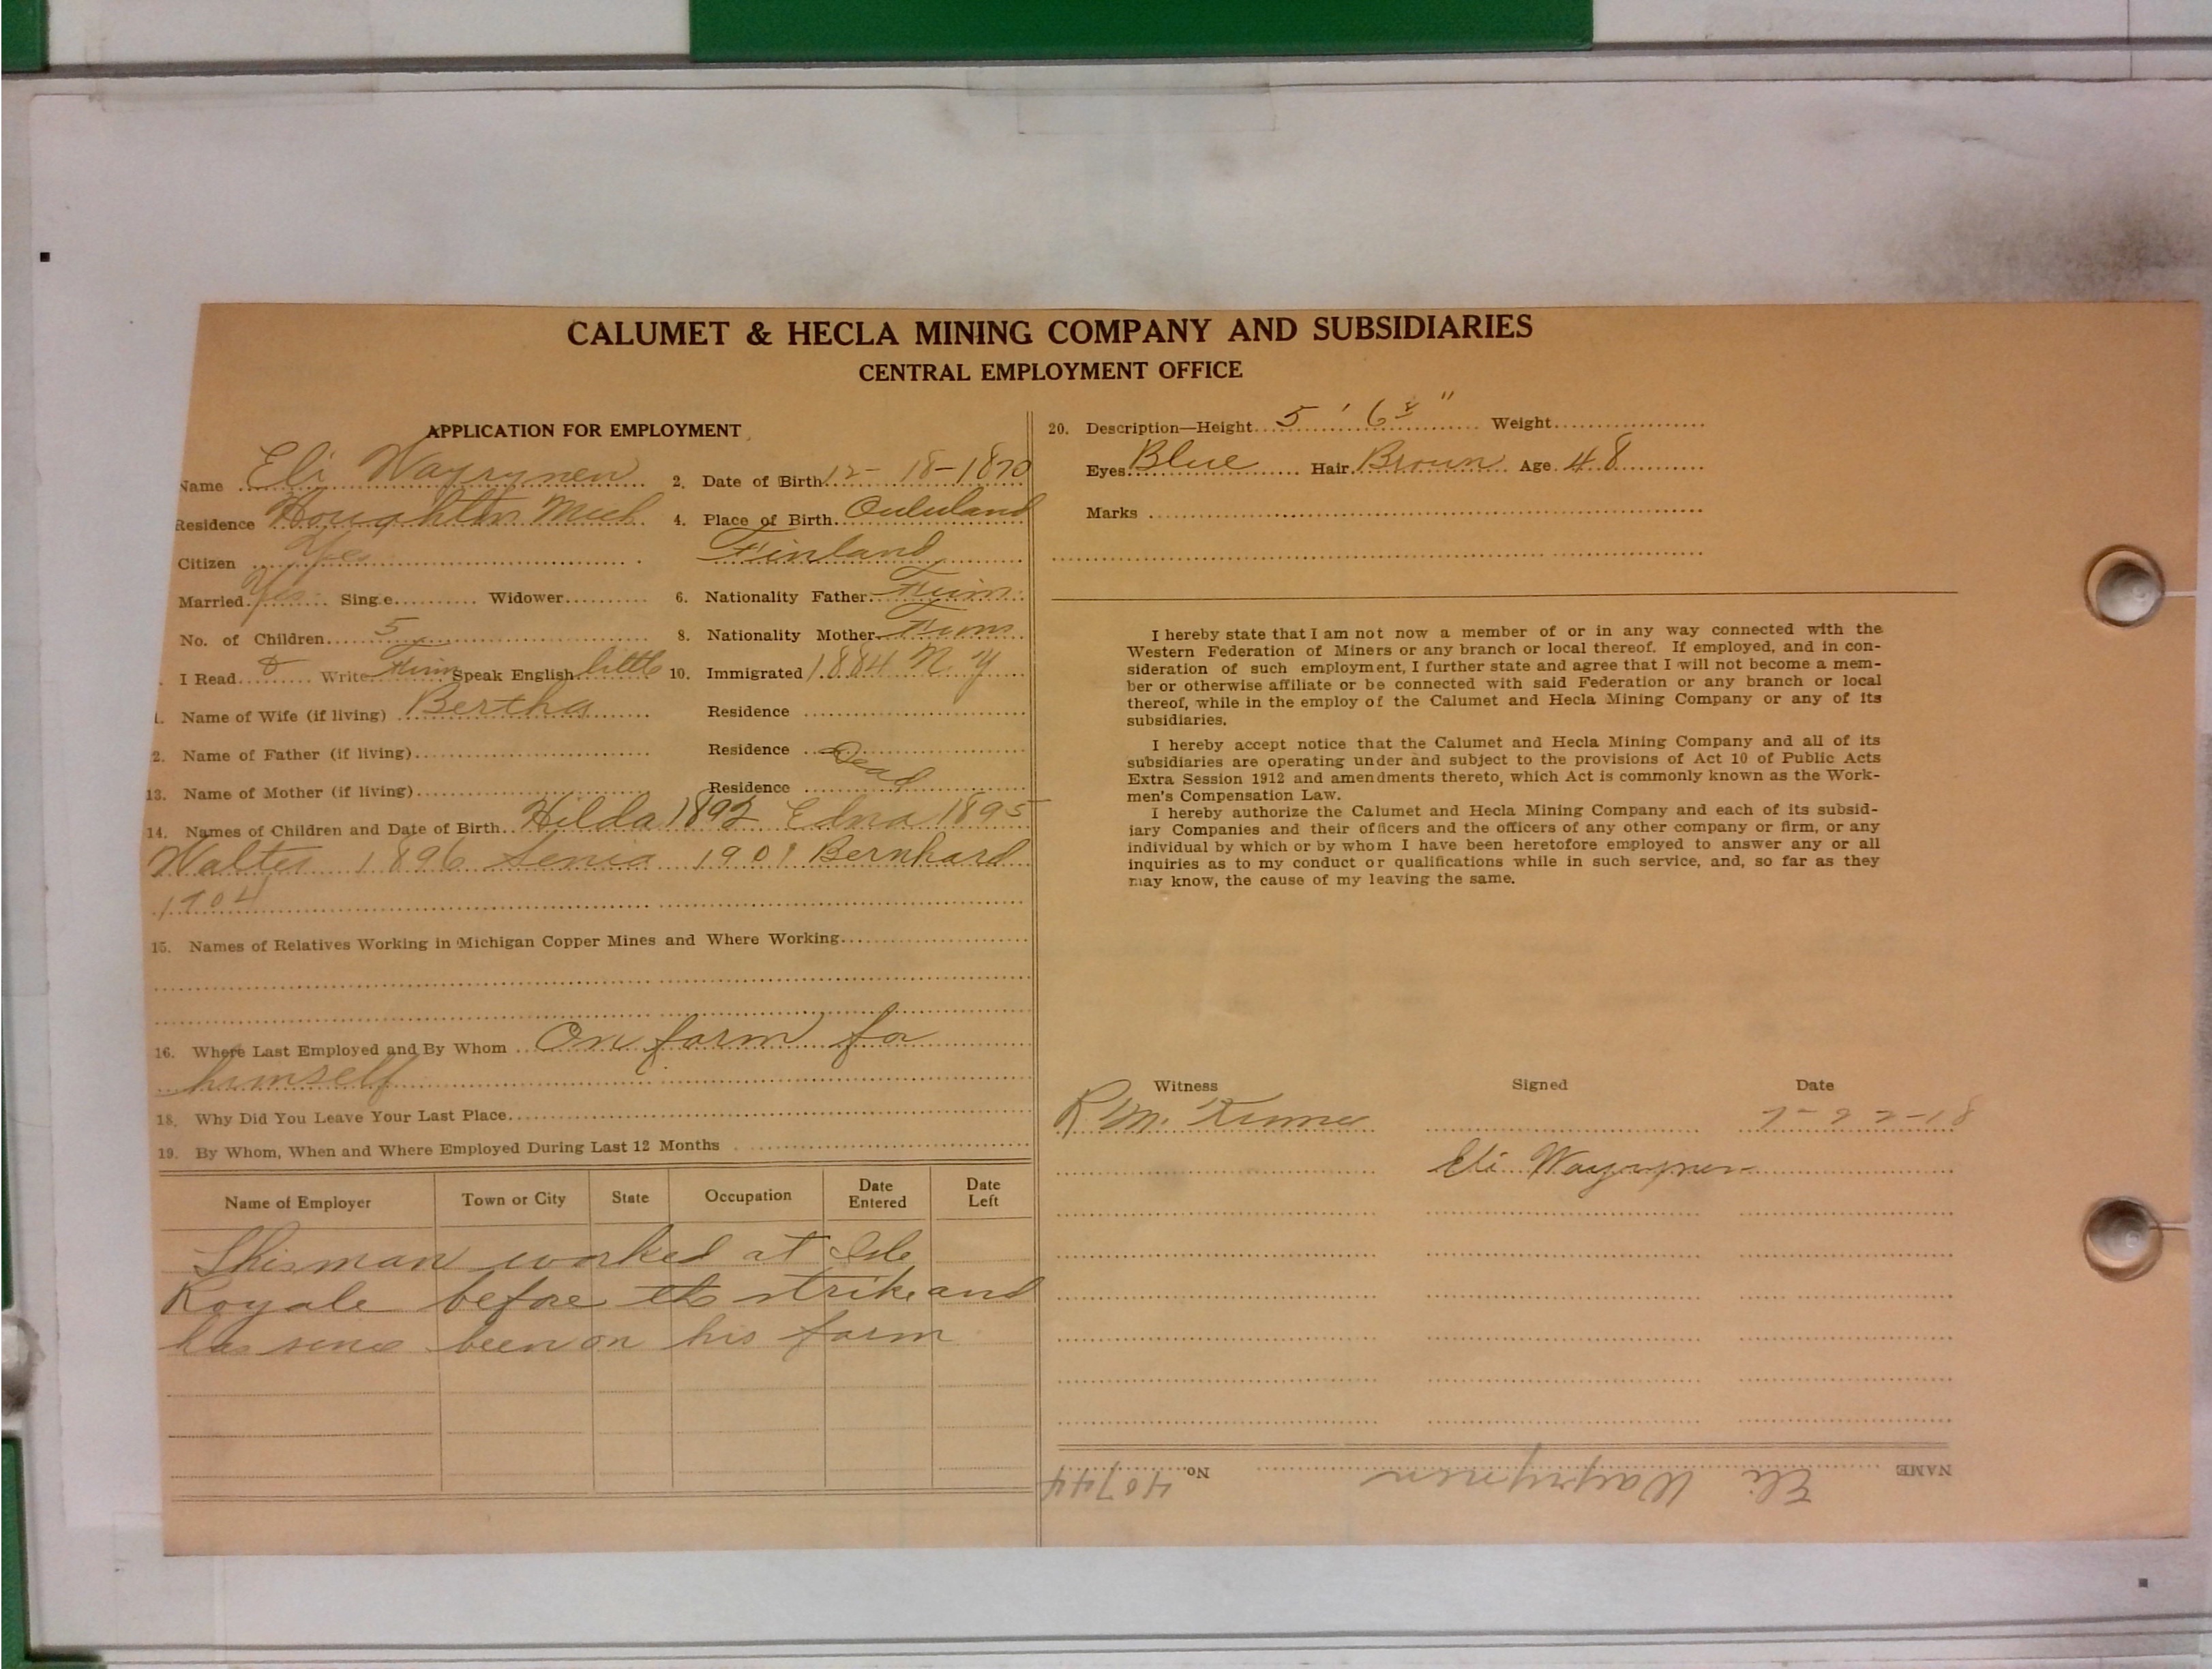 CALUMET & HECLA MINING COMPANY AND SUBSIDIARIES
CENTRAL EMPLOYMENT OFFICE
APPLICATION FOR EMPLOYMENT
Name Eli Wayrynen 2. Date of Birth 12-18-1870
Residence Houghton Mich 4. Place of Birth Oululand
Citizen Yes Finland
Married Yes Single Widower 6. Nationality Father Finn
No. of Children 5 8. Nationality Mother Finn
I Read & Write Finn Speak English little 10. Immigrated 1884 N. Y
1. Name of Wife (if living) Bertha Residence
2. Name of Father (if living) Residence Dead
13. Name of Mother (if living) Residence
14. Names of Children and Date of Birth Hilda 1892 Edna 1895
Walter 1896 Senia 1901 Bernhard
1904
15. Names of Relatives Working in Michigan Copper Mines and Where Working
16. Where Last Employed and By Whom On farm for
himself
18. Why Did You Leave Your Last Place
19. By Whom, When and Where Employed During Last 12 Months
Name of Employer Town or City State Occupation Date Entered Date Left
This man worked at Isle
Royale before the strike and
has since been on his farm
20. Description—Height 5' 6 " Weight
Eyes Blue Hair Brown Age 48
Marks
I hereby state that I am not now a member of or in any way connected with the
Western Federation of Miners or any branch or local thereof. If employed, and in con-
sideration of such employment, I further state and agree that I will not become a mem-
ber or otherwise affiliate or be connected with said Federation or any branch or local
thereof, while in the employ of the Calumet and Hecla Mining Company or any of its
subsidiaries.
I hereby accept notice that the Calumet and Hecla Mining Company and all of its
subsidiaries are operating under and subject to the provisions of Act 10 of Public Acts
Extra Session 1912 and amendments thereto, which Act is commonly known as the Work-
men's Compensation Law.
I hereby authorize the Calumet and Hecla Mining Company and each of its subsid-
iary Companies and their officers and the officers of any other company or firm, or any
individual by which or by whom I have been heretofore employed to answer any or all
inquiries as to my conduct or qualifications while in such service, and, so far as they
may know, the cause of my leaving the same.
Witness Signed Date
R. M. 7-22-18
Eli Wayrynen
NAME Eli Wayrynen No. 40744